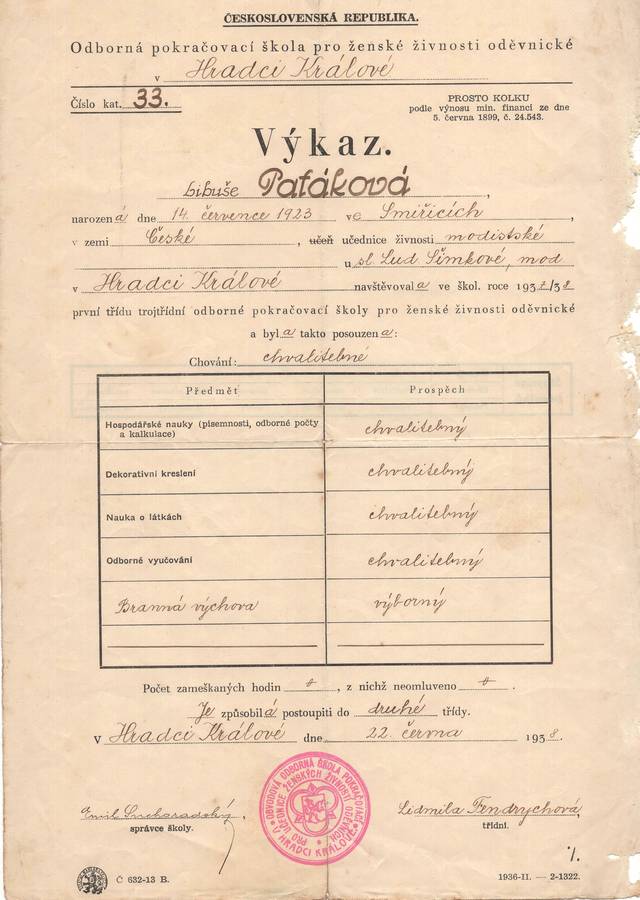 ČESKOSLOVENSKÁ REPUBLIKA.
Odborná pokračovací škola pro ženské živnosti oděvnické
v Hradci Králové
Číslo kat. 33.
PROSTO KOLKU
podle výnosu min. financí ze dne
5. června 1899, č. 24.543.
Výkaz.
Libuše Patáková,
narozená dne 14. července 1923 ve Smiřicích,
v zemi České, učeň učednice živnosti modistské
u sl. Lud Šimkové, mod
v Hradci Králové navštěvovala ve škol. roce 1937/38
první třídu trojtřídní odborné pokračovací školy pro ženské živnosti oděvnické
a byla takto posouzena:
Chování: chvalitebné
Předmět Prospěch
Hospodářské nauky (písemnosti, odborné počty
a kalkulace) chvalitebný
Dekorativní kreslení chvalitebný
Nauka o látkách chvalitebný
Odborné vyučování chvalitebný
Branná výchova výborný
Počet zameškaných hodin, z nichž neomluveno.
Je způsobilá postoupiti do druhé třídy.
V Hradci Králové dne 22. června 1938.
OBVODOVÁ ODBORNÁ ŠKOLA POKRAČOVACÍ
PRO UČEDNICE ŽENSKÝCH ŽIVNOSTÍ ODĚVNÍCH
V HRADCI KRÁLOVÉ
Emil
správce školy.
Lidmila Fendrychová,
třídní.
Č 632-13 B.
1936-II. — 2-1322.